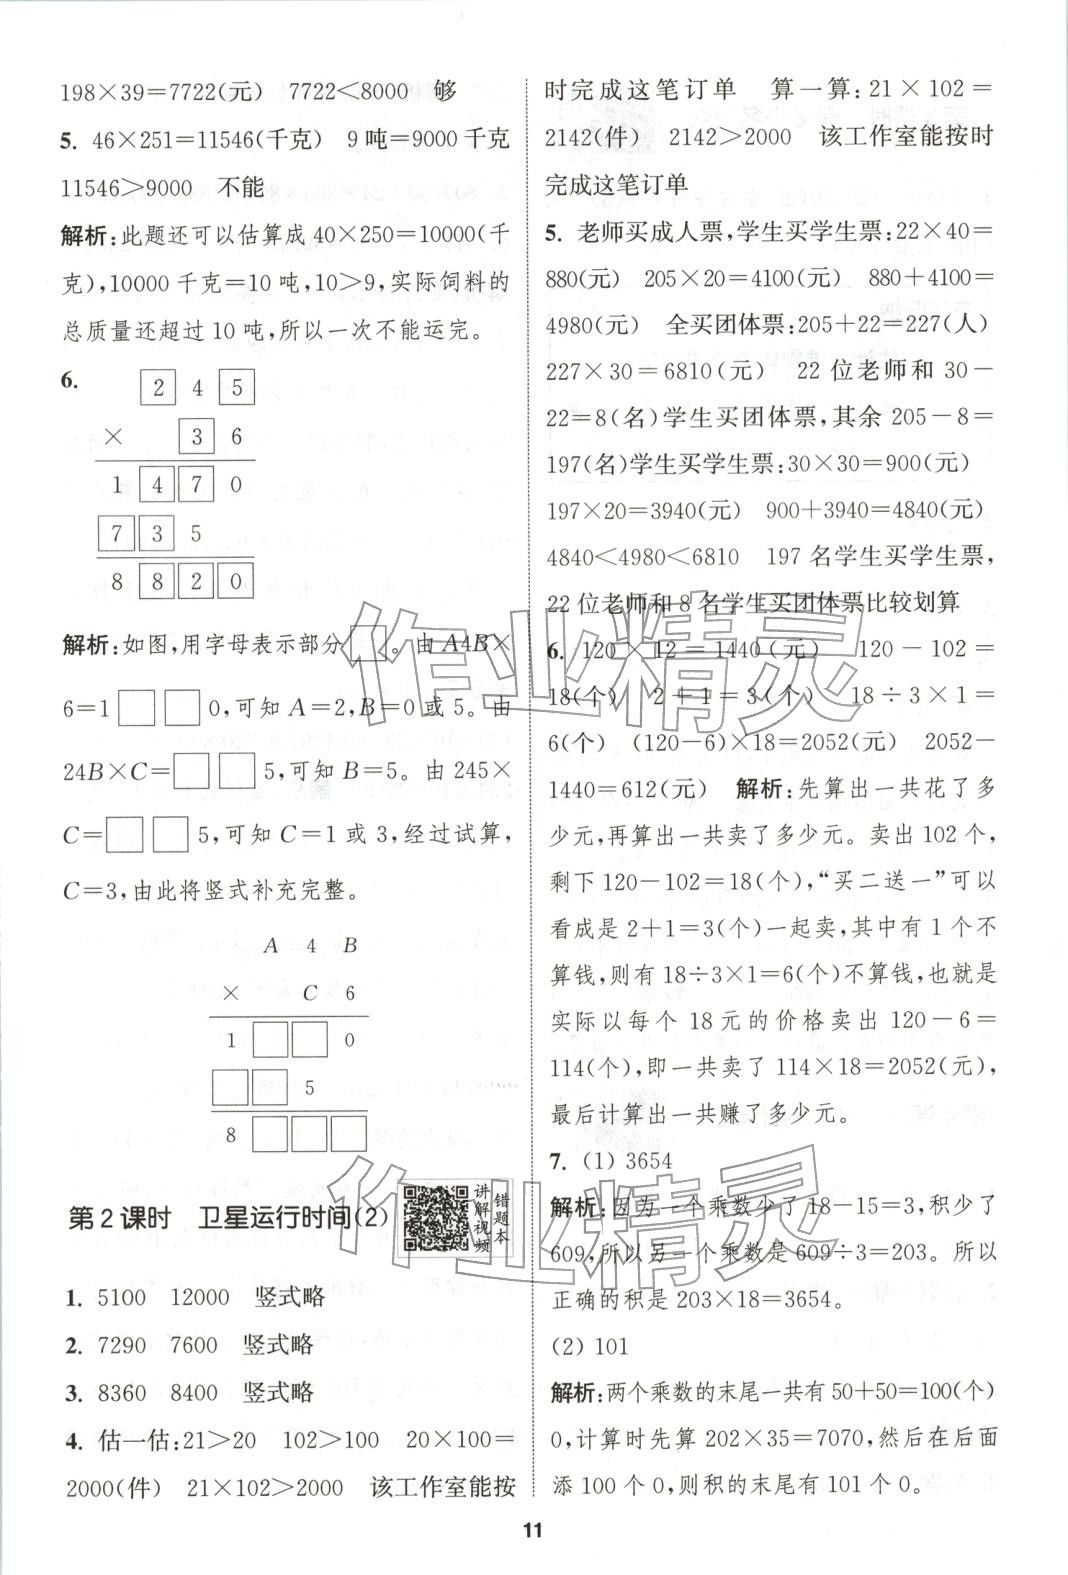 198×39=7722(元)　7722<8000　够
5. 46×251=11546(千克)　9 吨=9000 千克
11546>9000　不能
解析:此题还可以估算成 40×250=10000(千
克),10000 千克=10 吨,10>9,实际饲料的
总质量还超过 10 吨,所以一次不能运完。
6.
2 4 5
× 3 6
1 4 7 0
7 3 5
8 8 2 0
解析:如图,用字母表示部分□。由 A4B×
6=1□□0,可知 A=2,B=0 或 5。由
24B×C=□□5,可知 B=5。由 245×
C=□□5,可知 C=1 或 3,经过试算,
C=3,由此将竖式补充完整。
A 4 B
× C 6
1 □ □ 0
□ □ 5
8 □ □ □
第 2 课时　卫星运行时间(2)
讲解视频
错题本
1. 5100　12000　竖式略
2. 7290　7600　竖式略
3. 8360　8400　竖式略
4. 估一估:21>20　102>100　20×100=
2000(件)　21×102>2000　该工作室能按
时完成这笔订单　算一算:21×102=
2142(件)　2142>2000　该工作室能按时
完成这笔订单
5. 老师买成人票,学生买学生票:22×40=
880(元)　205×20=4100(元)　880+4100=
4980(元)　全买团体票:205+22=227(人)
227×30=6810(元)　22 位老师和 30-
22=8(名)学生买团体票,其余 205-8=
197(名)学生买学生票:30×30=900(元)
197×20=3940(元)　900+3940=4840(元)
4840<4980<6810　197 名学生买学生票,
22 位老师和 8 名学生买团体票比较划算
6. 120×12=1440(元)　120-102=
18(个)　2+1=3(个)　18÷3×1=
6(个)　(120-6)×18=2052(元)　2052-
1440=612(元)　解析:先算出一共花了多
少元,再算出一共卖了多少元。卖出 102 个,
剩下 120-102=18(个),“买二送一”可以
看成是 2+1=3(个)一起卖,其中有 1 个不
算钱,则有 18÷3×1=6(个)不算钱,也就是
实际以每个 18 元的价格卖出 120-6=
114(个),即一共卖了 114×18=2052(元),
最后计算出一共赚了多少元。
7. (1) 3654
解析:因为一个乘数少了 18-15=3,积少了
609,所以另一个乘数是 609÷3=203。所以
正确的积是 203×18=3654。
(2) 101
解析:两个乘数的末尾一共有 50+50=100(个)
0,计算时先算 202×35=7070,然后在后面
添 100 个 0,则积的末尾有 101 个 0。
11
作业精灵
作业精灵